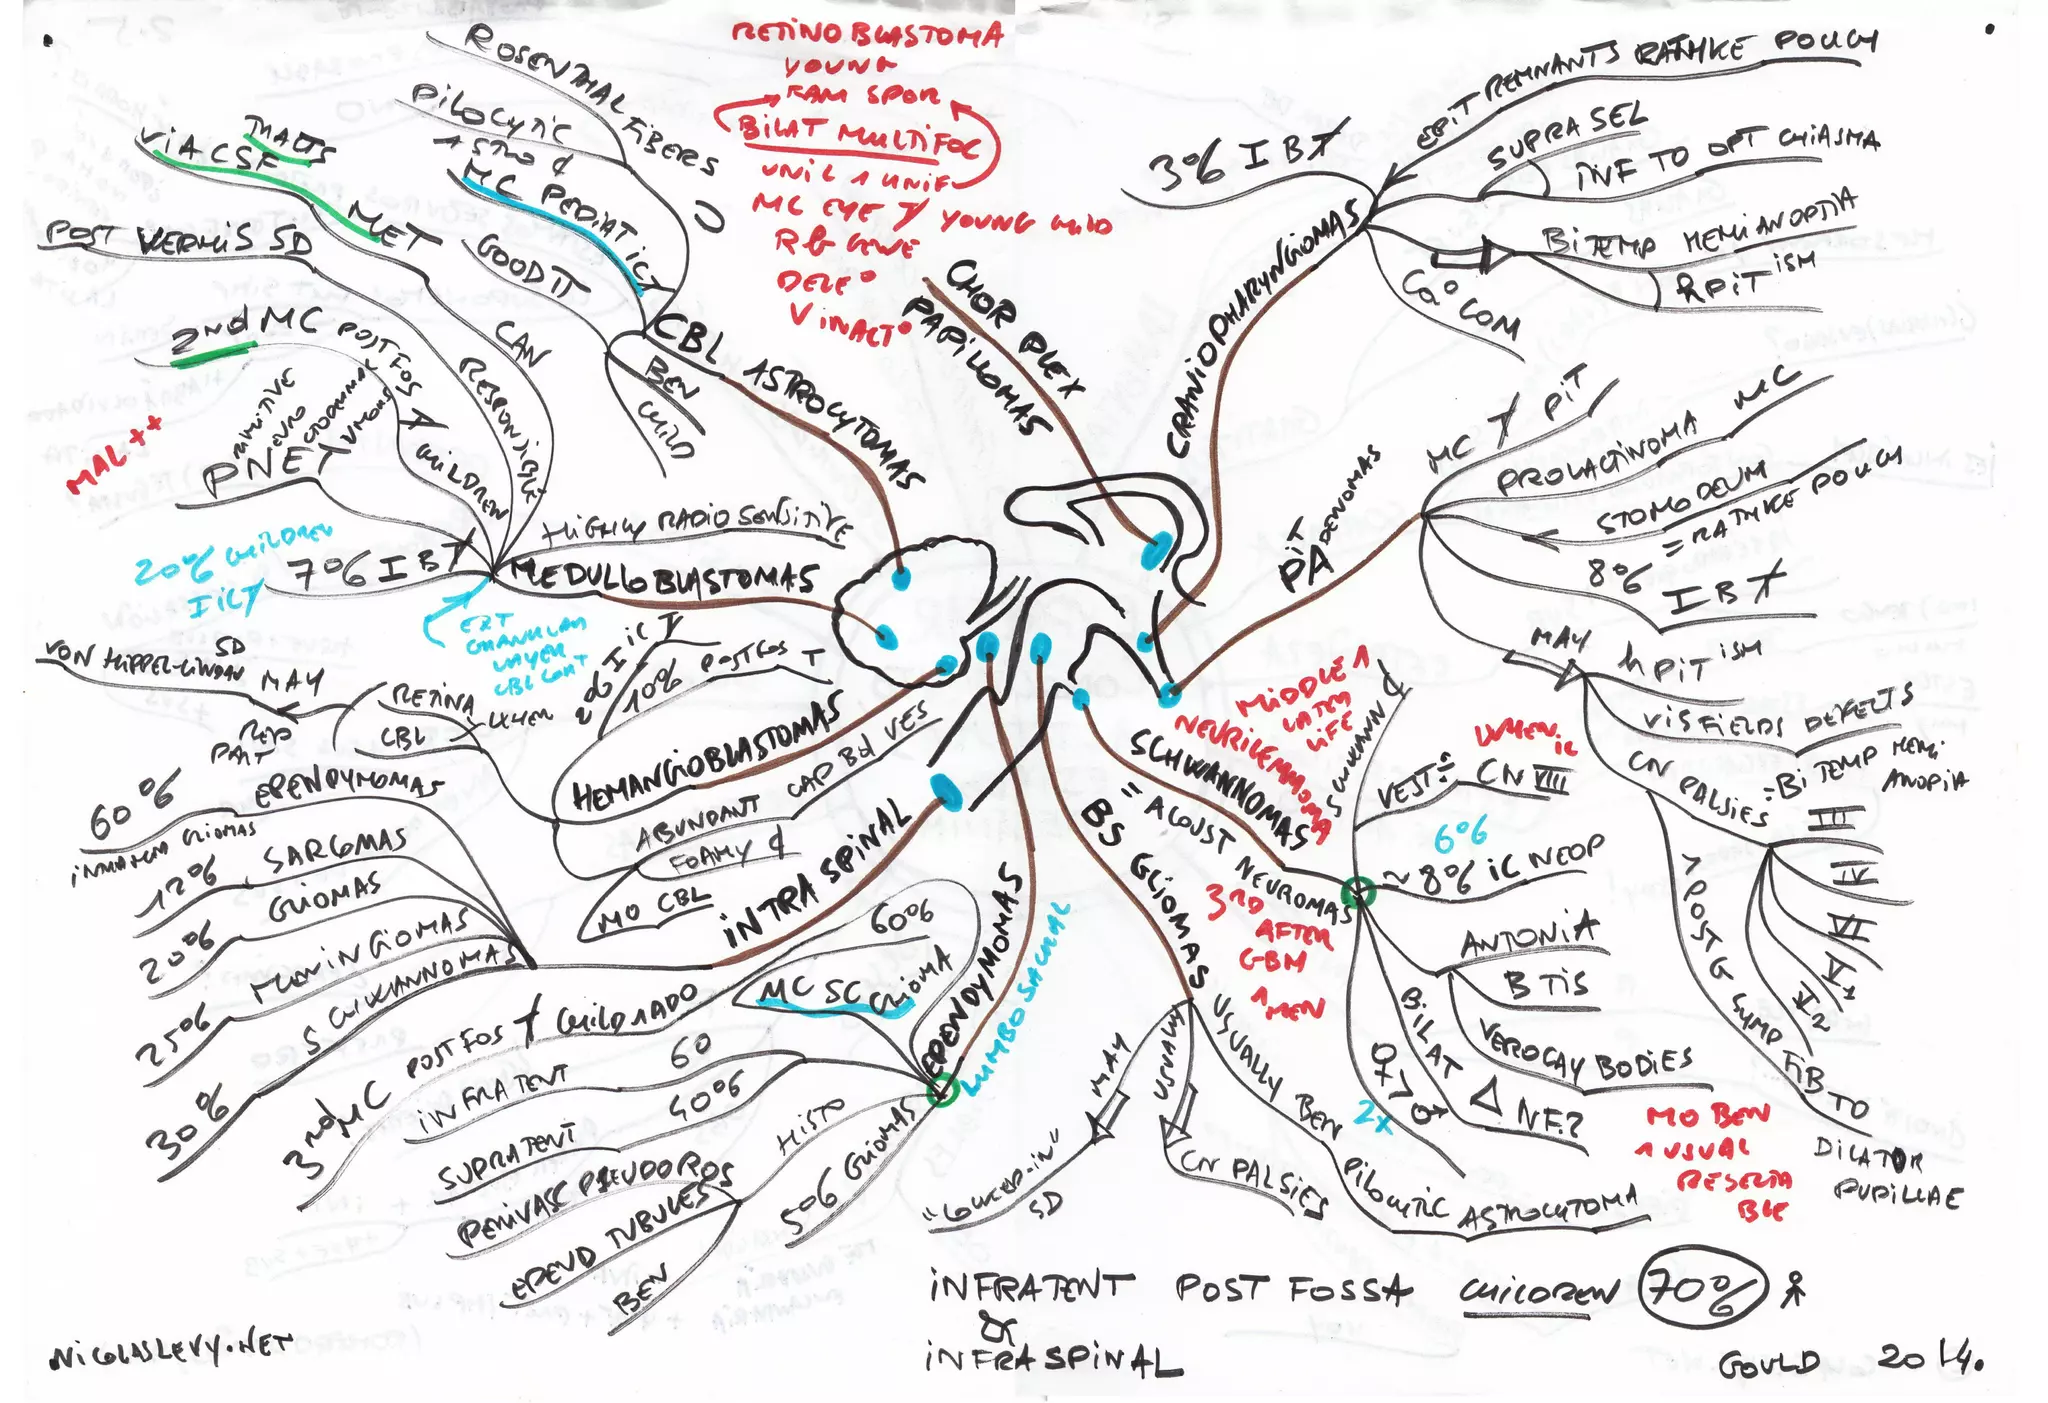 RETINOBLASTOMA
YOUNG
FAM SPOR
BILAT MULTIFOC
UNIL 1 UNIF
MC EYE T YOUNG CHILD
Rb GENE
DELE°
V INACT°
ROSENTHAL FIBERS
PILOCYTIC
ASTRO ¢
MC PEDIAT ICT
GOOD π
BEN
CHILD
CBL ASTROCYTOMAS
CHOR PLEX
PAPILLOMAS
CRANIOPHARYNGIOMAS
3% IBT
EPIT REMNANTS RATHKE POUCH
SUPRASEL
INF TO OPT CHIASMA
BITEMP HEMIANOPTIA
hPITISM
Ca° COM
TRACTS
VIA CSF
MET
CAN
POST VERMIS SD
RESPONSIBLE
2nd MC POSTFOS T CHILDREN
PRIMITIVE
NEURO
ECTODERMAL
TUMORS
PNET
MAL++
20% CHILDREN
ICT
7% IBT
HIGHLY RADIOSENSITIVE
MEDULLOBLASTOMAS
EXT
GRANULAR
LAYER
CBL CORT
PIT
PA DENOMAS
MC T PIT
PROLACTINOMA MC
STOMODEUM
= RATHKE POUCH
8% IBT
MAY hPITISM
VISFIELDS DEFECTS
= BITEMP HEMI
ANOPIA
CN PALSIES
III
IV
VI
V1
V2
> POSTG SYMP FIB TO
DILATOR
PUPILLAE
VON HIPPEL-LINDAU
SD
MAY
RETINA
CBL
2% ICT
10% POSTFOS T
HEMANGIOBLASTOMAS
ABUNDANT CAP Bd VES
FOAMY ¢
MO CBL
INTRASPINAL
60%
EPENDYMOMAS
12% SARCOMAS
20% GLIOMAS
25% MENINGIOMAS
30% SCHWANNOMAS
EPENDYMOMAS
LUMBOSACRAL
60%
MC SC GLIOMA
3rd MC POSTFOS T CHILD
INFRATENT 60
SUPRATENT 40%
HISTO
PERIVASC PSEUDOROS
EPEND TUBULES
BEN
5% GLIOMAS
BS GLIOMAS
MAY
"LOCKED-IN"
SD
USUALLY
CN PALSIES
USUALLY BEN
PILOCYTIC ASTROCYTOMA
SCHWANNOMAS
= ACOUST NEUROMAS
MIDDLE 1
LATER
LIFE
NEURILEMMOMA
3RD
AFTER
GBM
1 MEN
SCHWANN ¢
VEST÷ CN VIII
6%
≈8% IC NEOP
ANTONI A
B TIS
VEROCAY BODIES
BILAT
NF2
♀ > ♂
2x
MO BEN
1 USUAL
RESECTA
BLE
INFRATENT POST FOSSA CHILDREN 70%
&
INFRASPINAL
NICOLASLEVY.NET
GOULD 2014.